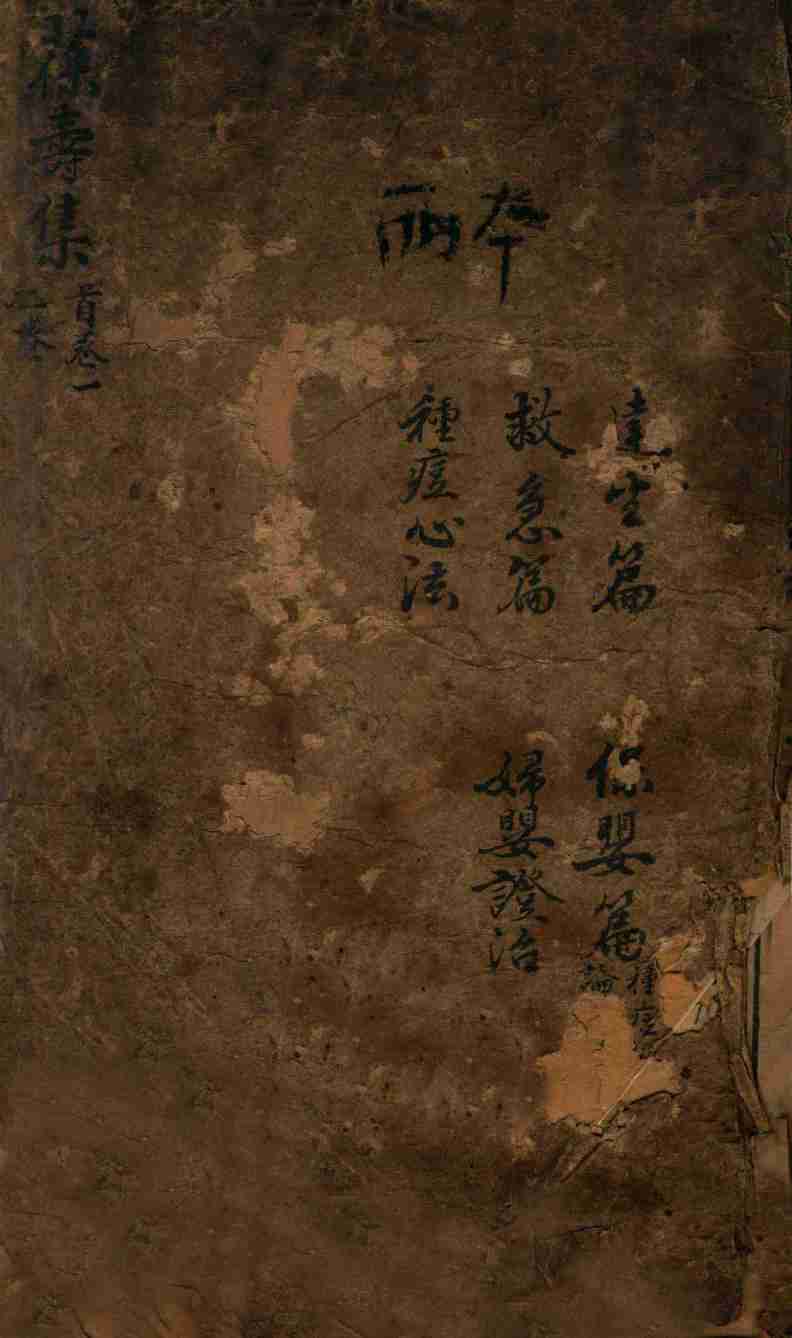 葆壽集
首卷一
二卷
兩夲
達生篇
救急篇
種痘心法
保嬰篇
種痘
論
婦嬰證治